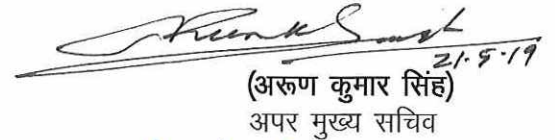 21.5.19
(अरूण कुमार सिंह)
अपर मुख्य सचिव